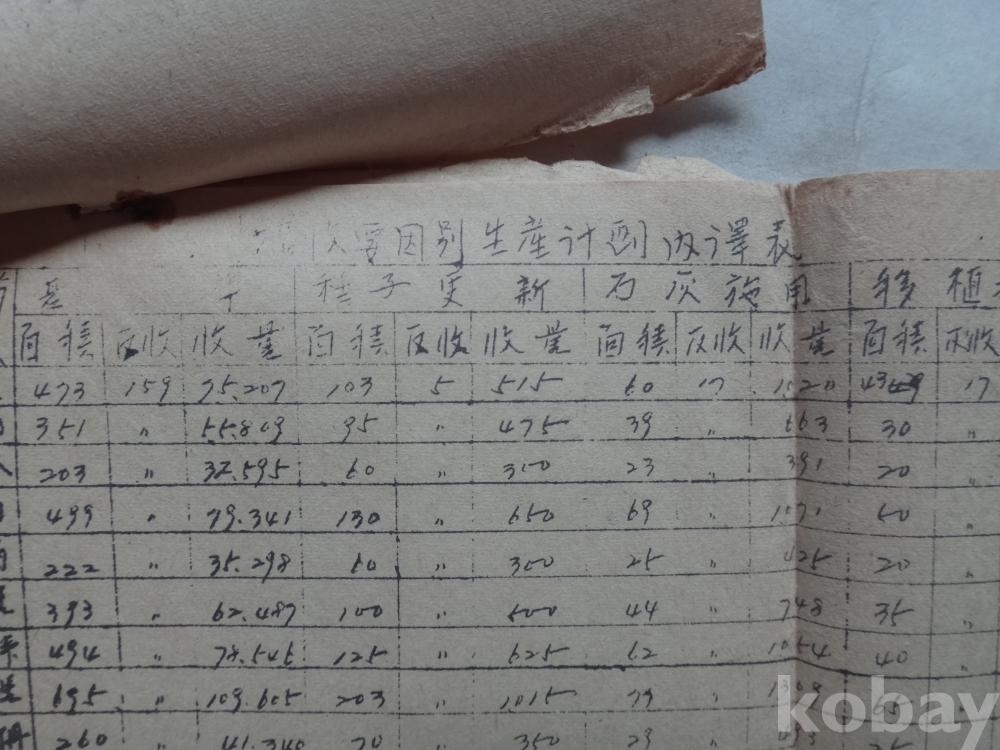 要因別生産計画内譯表
基 種子更新 石灰施用 移植
面積 反收 收量 面積 反收 收量 面積 反收 收量 面積 反收
473 159 75.207 103 5 515 60 17 1020 17
351 〃 55.809 95 〃 475 39 〃 663 30 〃
203 〃 32.595 60 〃 300 23 〃 391 20 〃
499 〃 79.341 130 〃 650 〃 1071 50 〃
222 〃 35.298 60 〃 300 25 〃 425 20 〃
393 〃 62.487 100 〃 500 44 〃 748 35 〃
494 〃 78.546 125 〃 625 62 〃 1054 40 〃
695 〃 109.605 203 〃 1015 〃 65 〃
260 〃 41.340 70 〃 350 29 〃 493
kobay